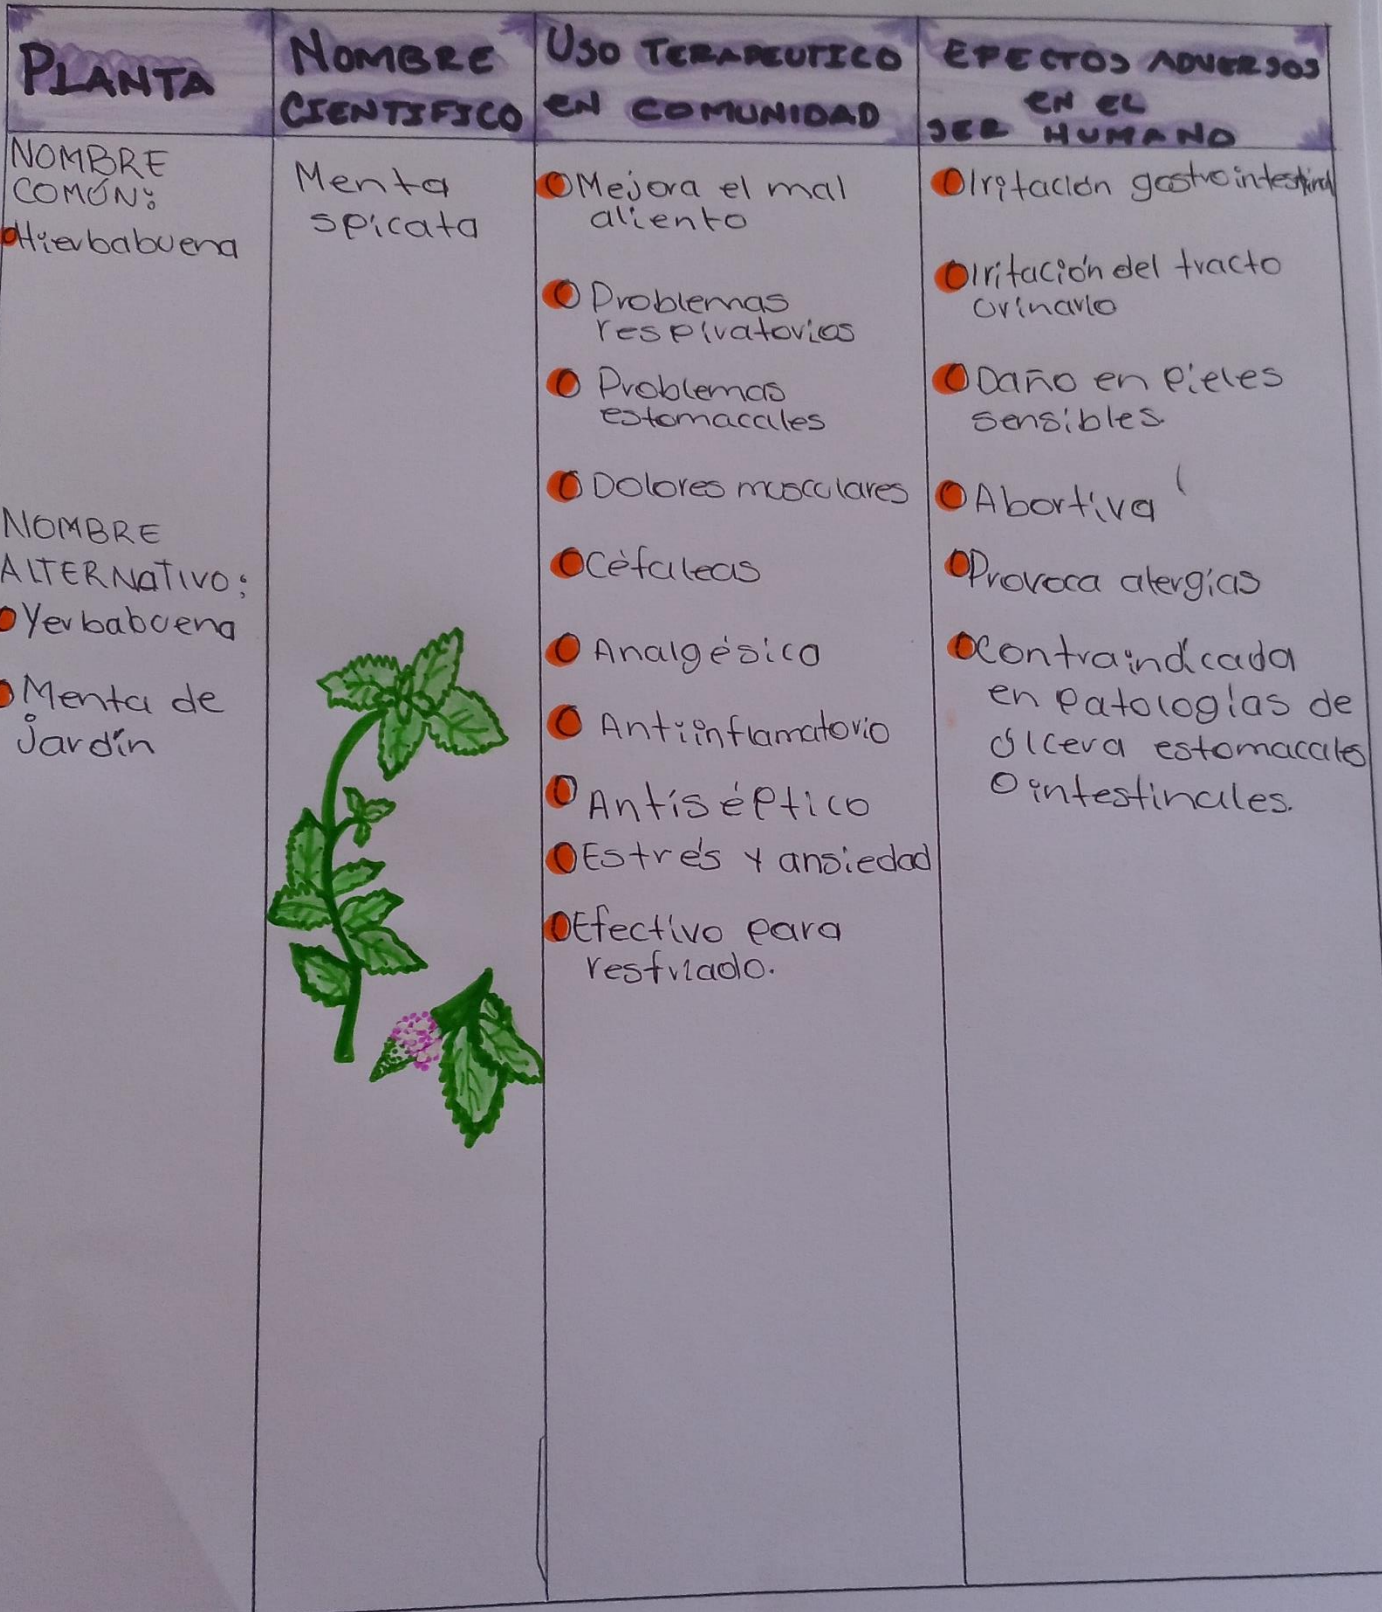 PLANTA
NOMBRE
CIENTIFICO
USO TERAPEUTICO
EN COMUNIDAD
EFECTOS ADVERSOS
EN EL
SER HUMANO
NOMBRE
COMÚN:
Hierbabuena
NOMBRE
ALTERNATIVO:
Yerbabuena
Menta de
jardín
Menta
spicata
Mejora el mal
aliento
Problemas
respiratorios
Problemas
estomacales
Dolores musculares
Céfaleas
Analgésico
Antiinflamatorio
Antiséptico
Estrés y ansiedad
Efectivo para
resfriado.
Iritación gastrointestinal
Iritación del tracto
urinario
Daño en pieles
sensibles.
Abortiva
Provoca alergías
Contraindicada
en patologías de
úlcera estomacales
o intestinales.